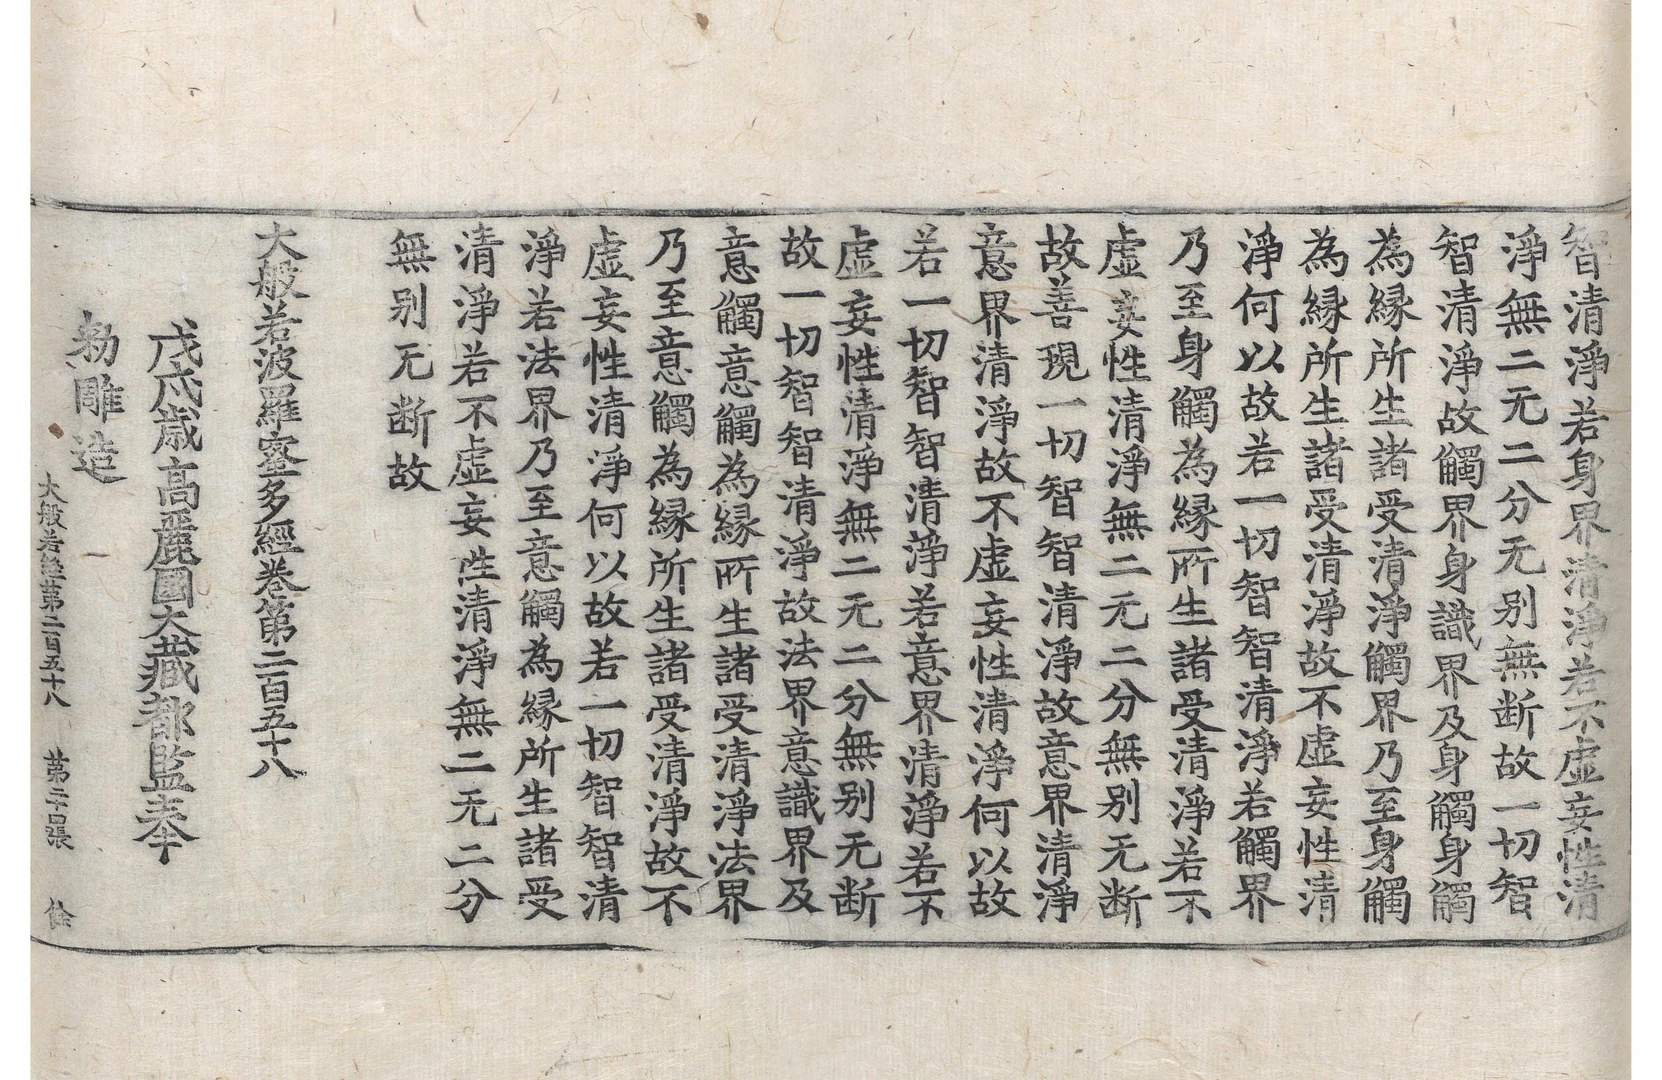 智清淨若身界清淨若不虛妄性清
淨無二无二分无別無断故一切智
智清淨故觸界身識界及身觸身觸
為縁所生諸受清淨觸界乃至身觸
為縁所生諸受清淨故不虛妄性清
淨何以故若一切智智清淨若觸界
乃至身觸為縁所生諸受清淨若不
虛妄性清淨無二无二分無別无断
故善現一切智智清淨故意界清淨
意界清淨故不虛妄性清淨何以故
若一切智智清淨若意界清淨若不
虛妄性清淨無二无二分無別无断
故一切智智清淨故法界意識界及
意觸意觸為縁所生諸受清淨法界
乃至意觸為縁所生諸受清淨故不
虛妄性清淨何以故若一切智智清
淨若法界乃至意觸為縁所生諸受
清淨若不虛妄性清淨無二无二分
無別无断故
大般若波羅蜜多經卷第二百五十八
戊戌歲高麗國大藏都監奉
勑雕造
大般若經第二百五十八 第二十張 餘